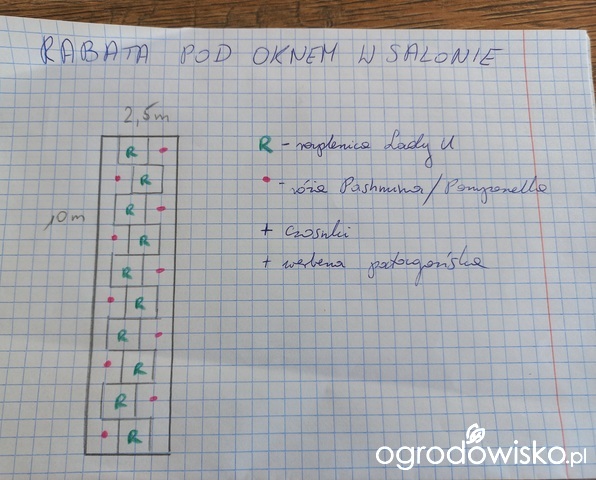 RABATA POD OKNEM W SALONIE
2,5m
R - rozplenica Lady U
R
• - róża Pashmina/Pomponella
R
10m
R
+ czosnki
R
+ werbena patagońska
R
R
R
R
R
R
ogrodowisko.pl